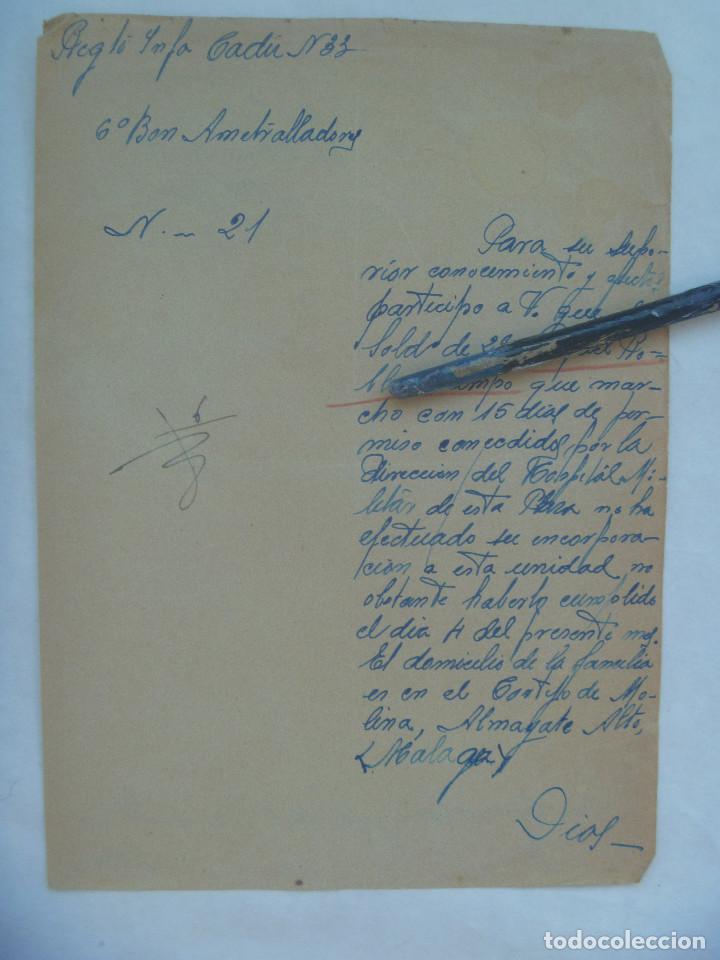 Regto Infa Cadiz N 33
6º Bon Ametralladoras
N. - 21
Para su supe-
rior conocimiento y
participo a V. que
Sold de 2ª
que mar-
cho con 15 dias de per-
miso concedidos por la
Direccion del Hospital Mi-
litar de esta Plaza no ha
efectuado su incorpora-
cion a esta unidad no
obstante haberlo cumplido
el dia 4 del presente mes.
El domicilio de la familia
es en el Cortijo de Mo-
lina, Almayate Alto,
(Malaga)
Dios -
todocoleccion